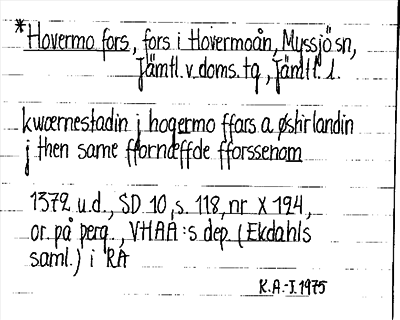 *Hovermo fors, fors i Hovermoån, Myssjö sn,
Jämtl. v. doms. tg, Jämtl. l.
kwærnestadin j hogermo ffars a østirlandin
j then same ffornæffde fforssenom
1372 u.d., SD 10, s. 118, nr X 194,
or. på perg., VHAA:s dep. (Ekdahls
saml.) i RA
K.A.-I. 1975